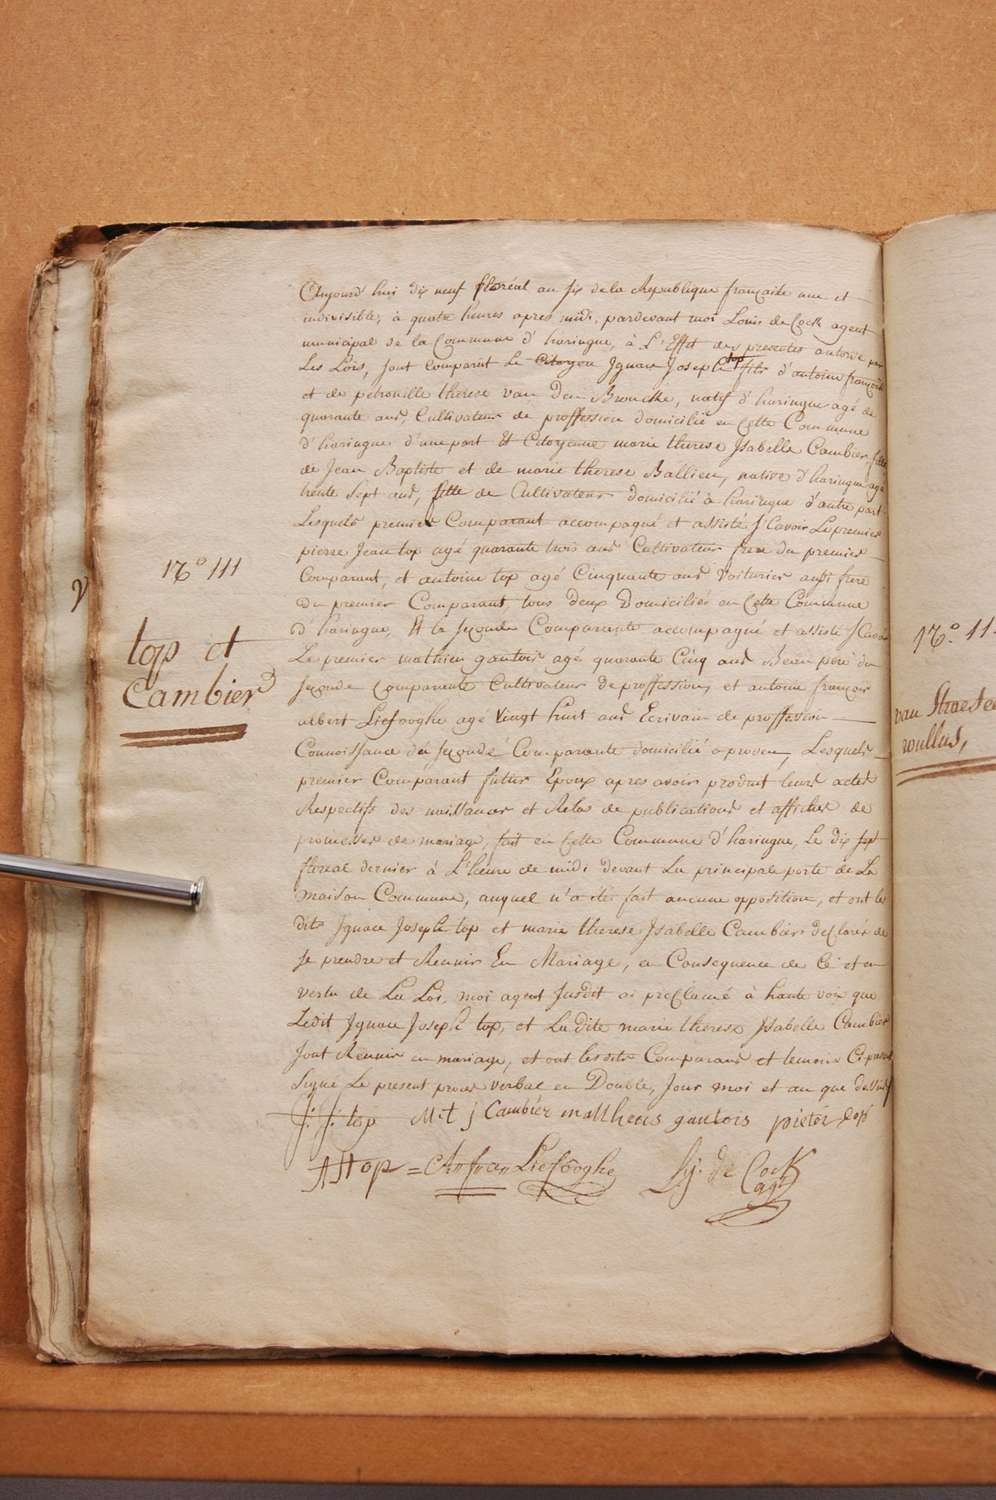 Aujourd'hui dix neuf floréal an six de la Republique française une et
indivisible, à quatre heures apres midi, pardevant moi Louis de Cock agent
municipal de la Commune d'haringue, à L'Effet des presentes autorisé par
Les Lois, sont comparut Le Citoyen Ignace Joseph top fils d'antoine françois
et de petronille therese van den Broucke, natif d'haringue agé de
quarante ans, Cultivateur de proffession domicilié en Cette Commune
d'haringue d'une part Et Citoyenne marie therese Isabelle Cambier fille
de Jean Baptiste et de marie therese Ballieu, native d'haringue agé
trente Sept ans, fille de Cultivateur domicilié à haringue d'autre part
Lesquels premier Comparant accompagné et assisté Scavoir Le premier
pierre Jean top agé quarante trois ans Cultivateur frere du premier
Comparant, et antoine top agé Cinquante ans Voiturier aussi frere
du premier Comparant, tous deux Domiciliés en Cette Commune
d'haringue, Et la seconde Comparante accompagné et assisté Scavoir
Le premier mathieu gautois agé quarante Cinq ans Beau pere du
seconde Comparante Cultivateur de proffession, et antoine françois
albert Liefooghe agé Vingt huit ans Ecrivain de proffession
Connoissance du secondé Comparante domicilié a proven, Lesquels
premier Comparant futur Epoux apres avoir produit leurs actes
Respectifs des naissances et Relas de publications et affiches de
promesses de mariage, fait en Cette Commune d'haringue, Le dix sept
floreal dernier à L'heure de midi devant La principale porte de La
maison Commune, auquel n'a été fait aucune opposition, et ont les
dits Ignace Joseph top et marie therese Isabelle Cambier desclarér de
se prendre et Reunir En Mariage, en Consequence de Cé et en
vertu de La Loi, moi agent susdit ai proclamé à haute voix que
Ledit Ignace Joseph top, et La dite marie therese Isabelle Cambier
sont Reunir en mariage, et ont lesdits Comparans et temoins Ci present
Signé Le present proces verbal en Double, Jour moi et an que dessus
J: J: top M: t J Cambier mattheus gautois pieter top
A J top = An fran Liefooghe Lij. de Cock
agt
N° 111
top et
Cambier
V
N°. 11
van Straesee
roullus,